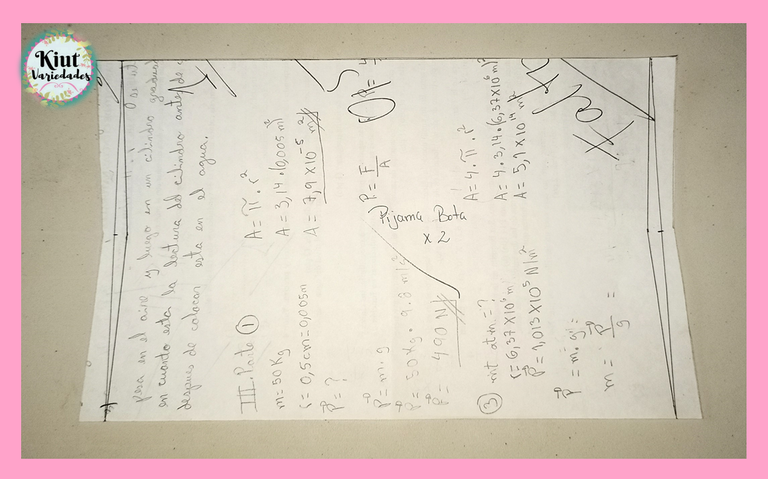 Kiut
Variedades
pesa en el aire y luego en un cilindro
en cuanto esta la lectura del cilindro antes de
despues de colocar esta en el agua.
III. Parte ①
m = 50 Kg
r = 0,5cm = 0,005m
P = ?
P = m.g
P = 50 Kg . 9.8 m/s
P = 490 N
A = π . r²
A = 3,14 . (0,005m)²
A = 7,9 x 10⁻⁵ m²
P = F/A
Pijama Bota
x 2
③ mt atm = ?
r = 6,37 x 10⁶ m
P = 1,013 x 10⁵ N/m²
P = m.g =
m = P/g =
A = 4 . π . r²
A = 4 . 3,14 . (6,37 x 10⁶ m)²
A = 5,1 x 10¹⁴ m²